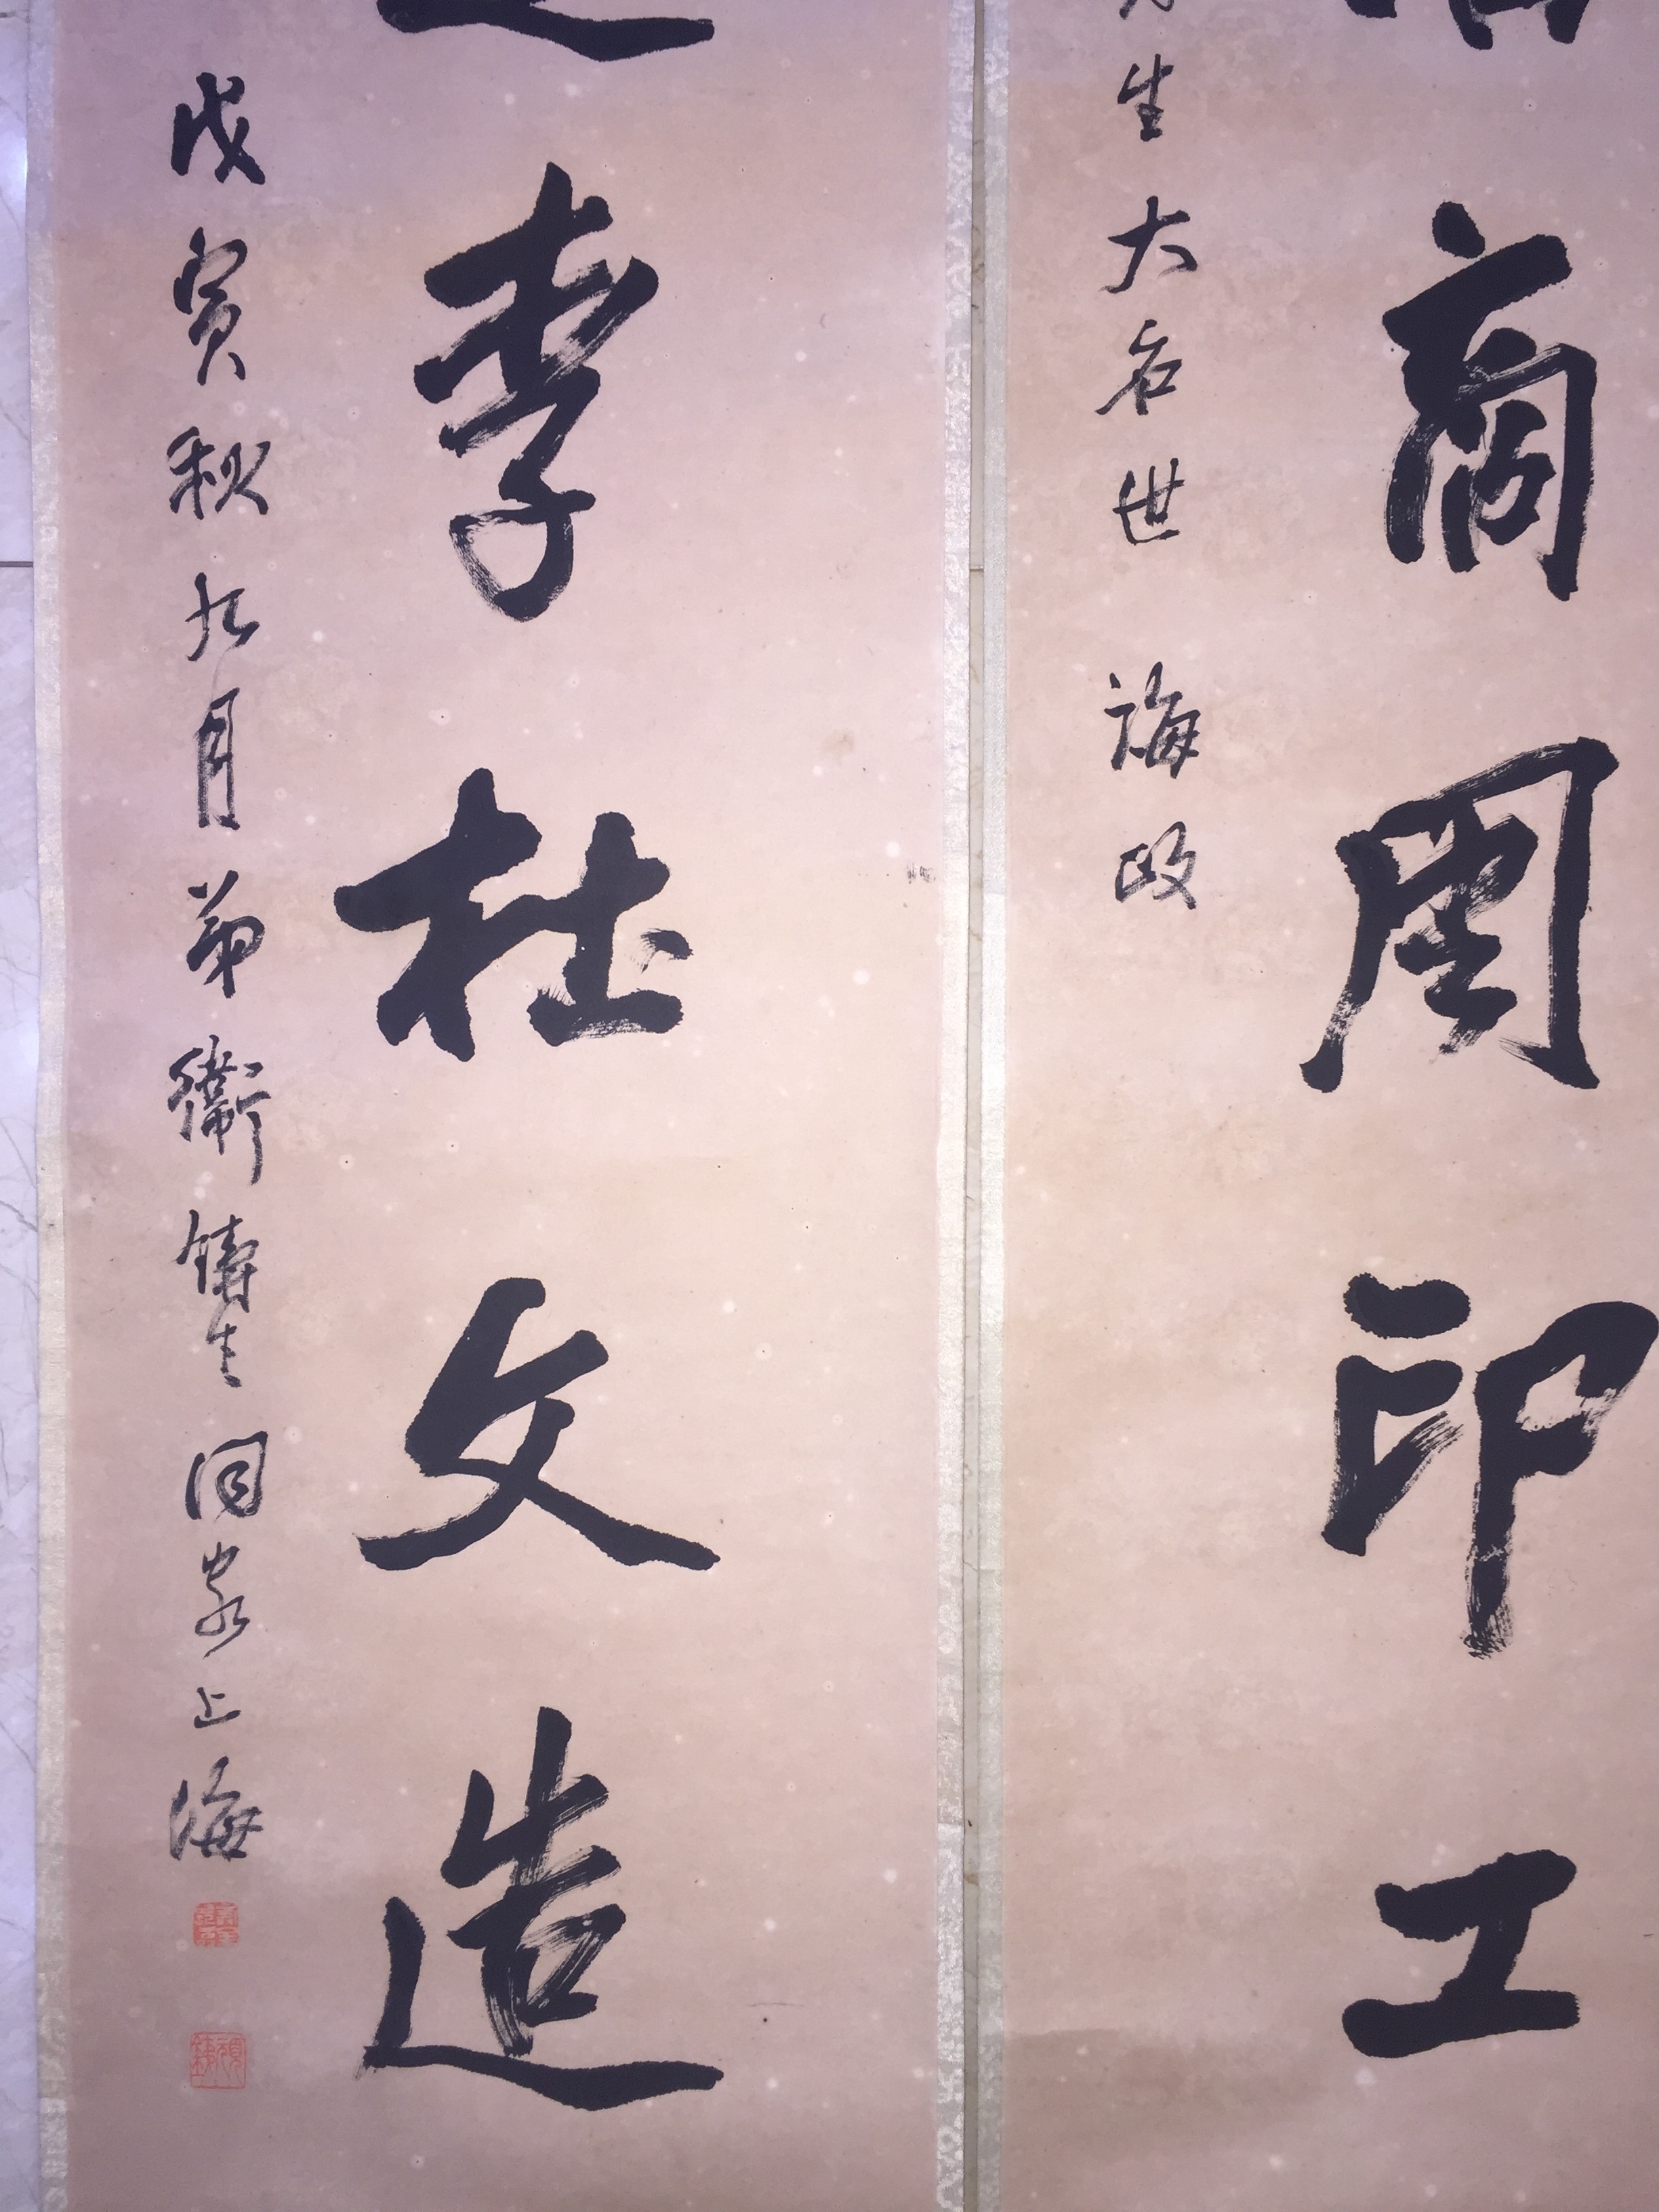 商周印工
生大名世 誨政
李杜文造
戊寅秋九月弟衛鑄生同客上海